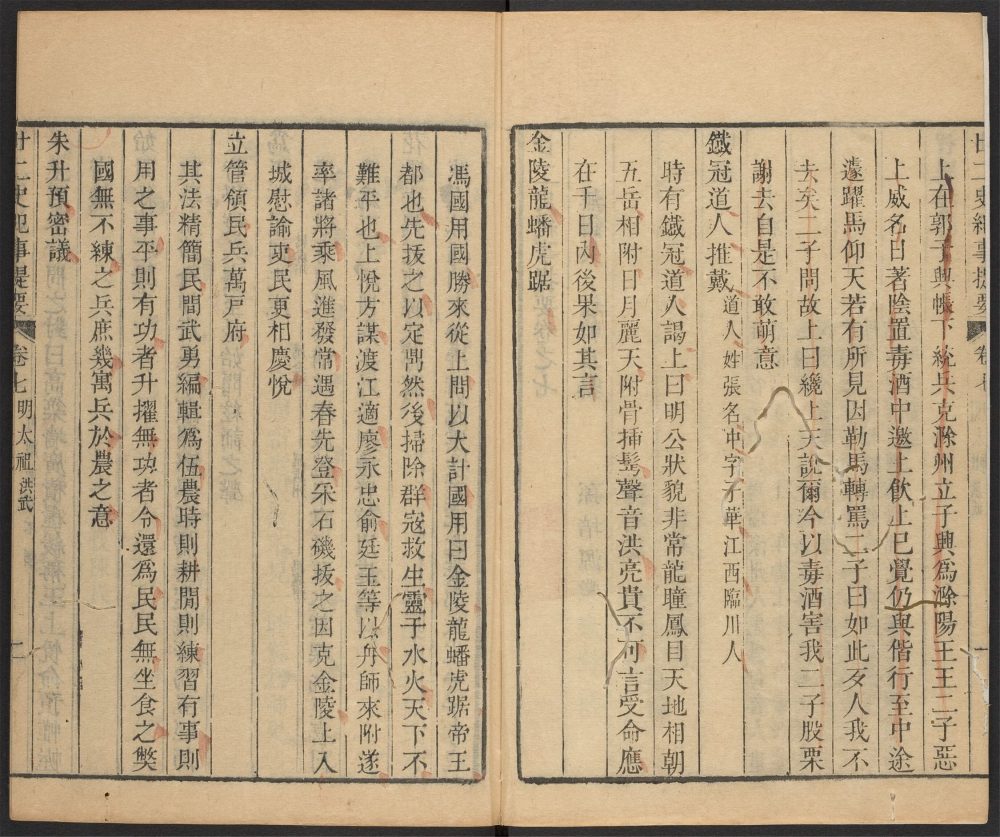 廿二史紀事提要 卷七
上在郭子興帳下統兵克滁州立子興為滁陽王王二子惡
上威名日著陰置毒酒中邀上飲上已覺仍與偕行至中途
遽躍馬仰天若有所見因勒馬轉罵二子曰如此歹人我不
去矣二子問故上曰纔上天說爾今以毒酒害我二子股栗
謝去自是不敢萌意
鐵冠道人推戴 道人姓張名冲字子華江西臨川人
時有鐵冠道人謁上曰明公狀貌非常龍瞳鳳目天地相朝
五岳相附日月麗天附骨插髩聲音洪亮貴不可言受命應
在千日內後果如其言
金陵龍蟠虎踞
馮國用國勝來從上問以大計國用曰金陵龍蟠虎踞帝王
都也先拔之以定鼎然後掃除群寇救生靈于水火天下不
難平也上悅方謀渡江適廖永忠俞廷玉等以舟師來附遂
率諸將乘風進發常遇春先登采石磯拔之因克金陵上入
城慰諭吏民更相慶悅
立管領民兵萬戶府
其法精簡民間武勇編輯為伍農時則耕閒則練習有事則
用之事平則有功者升擢無功者令還為民民無坐食之獘
國無不練之兵庶幾寓兵於農之意
朱升預密議
廿二史紀事提要 卷七明太祖 洪武 二